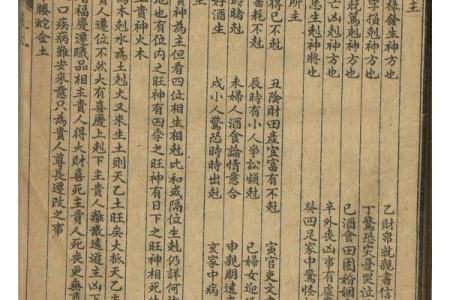 主
祿發生亡神方也　乙財帛就親書信
字損剋神方也　丁驚恐哭憂哭泣
驚剋神方也　己酒食田園婚姻
凶剋神方也　辛外喪凶事有虛
忌生剋神將也　癸四足家中驚怪
所主
得己不剋　丑陰財田產宜富有不剋　寅官吏文書
喜耗不剋　辰時有小人爭訟頓剋　巳婦女迎
時賭剋　未婦人酒食論情意合　申親朋遠
好酒生　戌小人驚恐時時出剋　亥家中病
貴神為主但看四位相生相剋比和或隔位生剋仍詳何
地也有位內之旺神有四季之旺神有日下之旺神有相死休
主貴神火木
為木剋水為土剋火又來生土則天乙土旺矣大抵天乙主
貴人遷位不然大有喜慶上剋下主貴人離散遠遊主凶下
增福慶遷職品相主貴人得大財喜死主貴人死喪更無尊
口疾病難安來意只為貴人尊長遷改之事
螣蛇金土